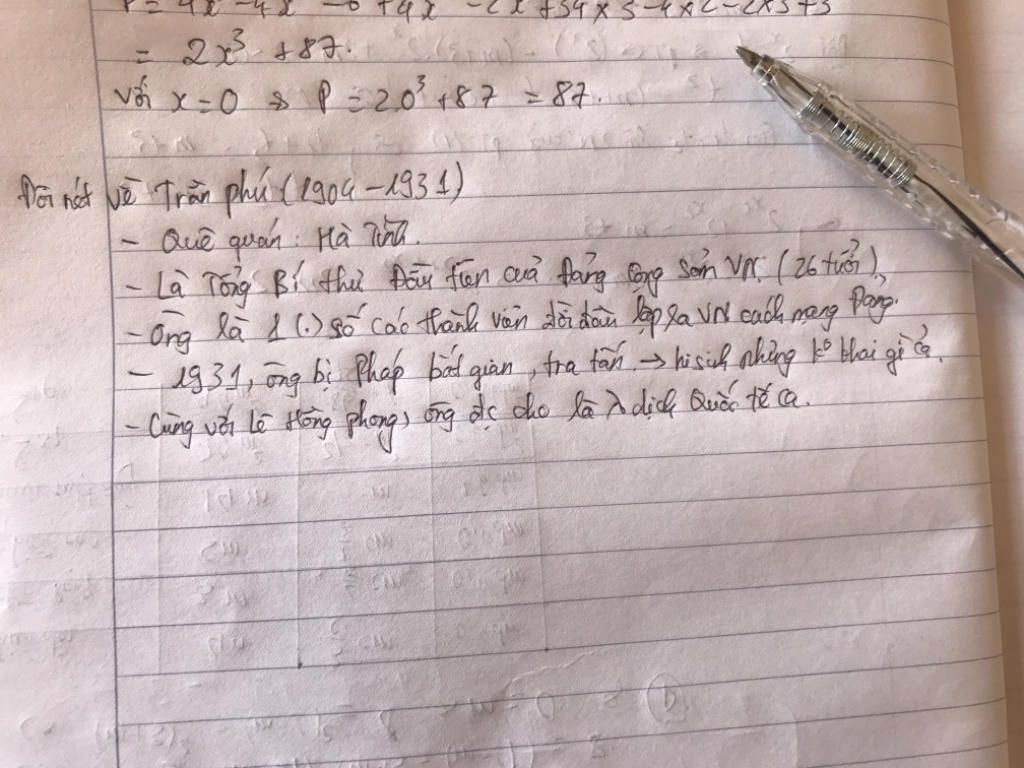 P = 4x - 4x - 6 + 4x - 2x + 54 x 3 - 4 x 2 - 2 x 3 + 3
= 2x³ + 87.
Với x = 0 => P = 2.0³ + 87 = 87.
Đôi nét về Trần Phú (1904 - 1931)
- Quê quán: Hà Tĩnh.
- Là Tổng Bí thư Đầu tiên của Đảng Cộng Sản VN. (26 tuổi)
- Ông là 1 (.) số các thành viên đời đầu lập ra VN cách mạng Đảng.
- 1931, ông bị Pháp bắt giam, tra tấn → hi sinh nhưng ko khai gì cả.
- Cùng với Lê Hồng Phong, ông đc cho là λ dịch Quốc tế ca.